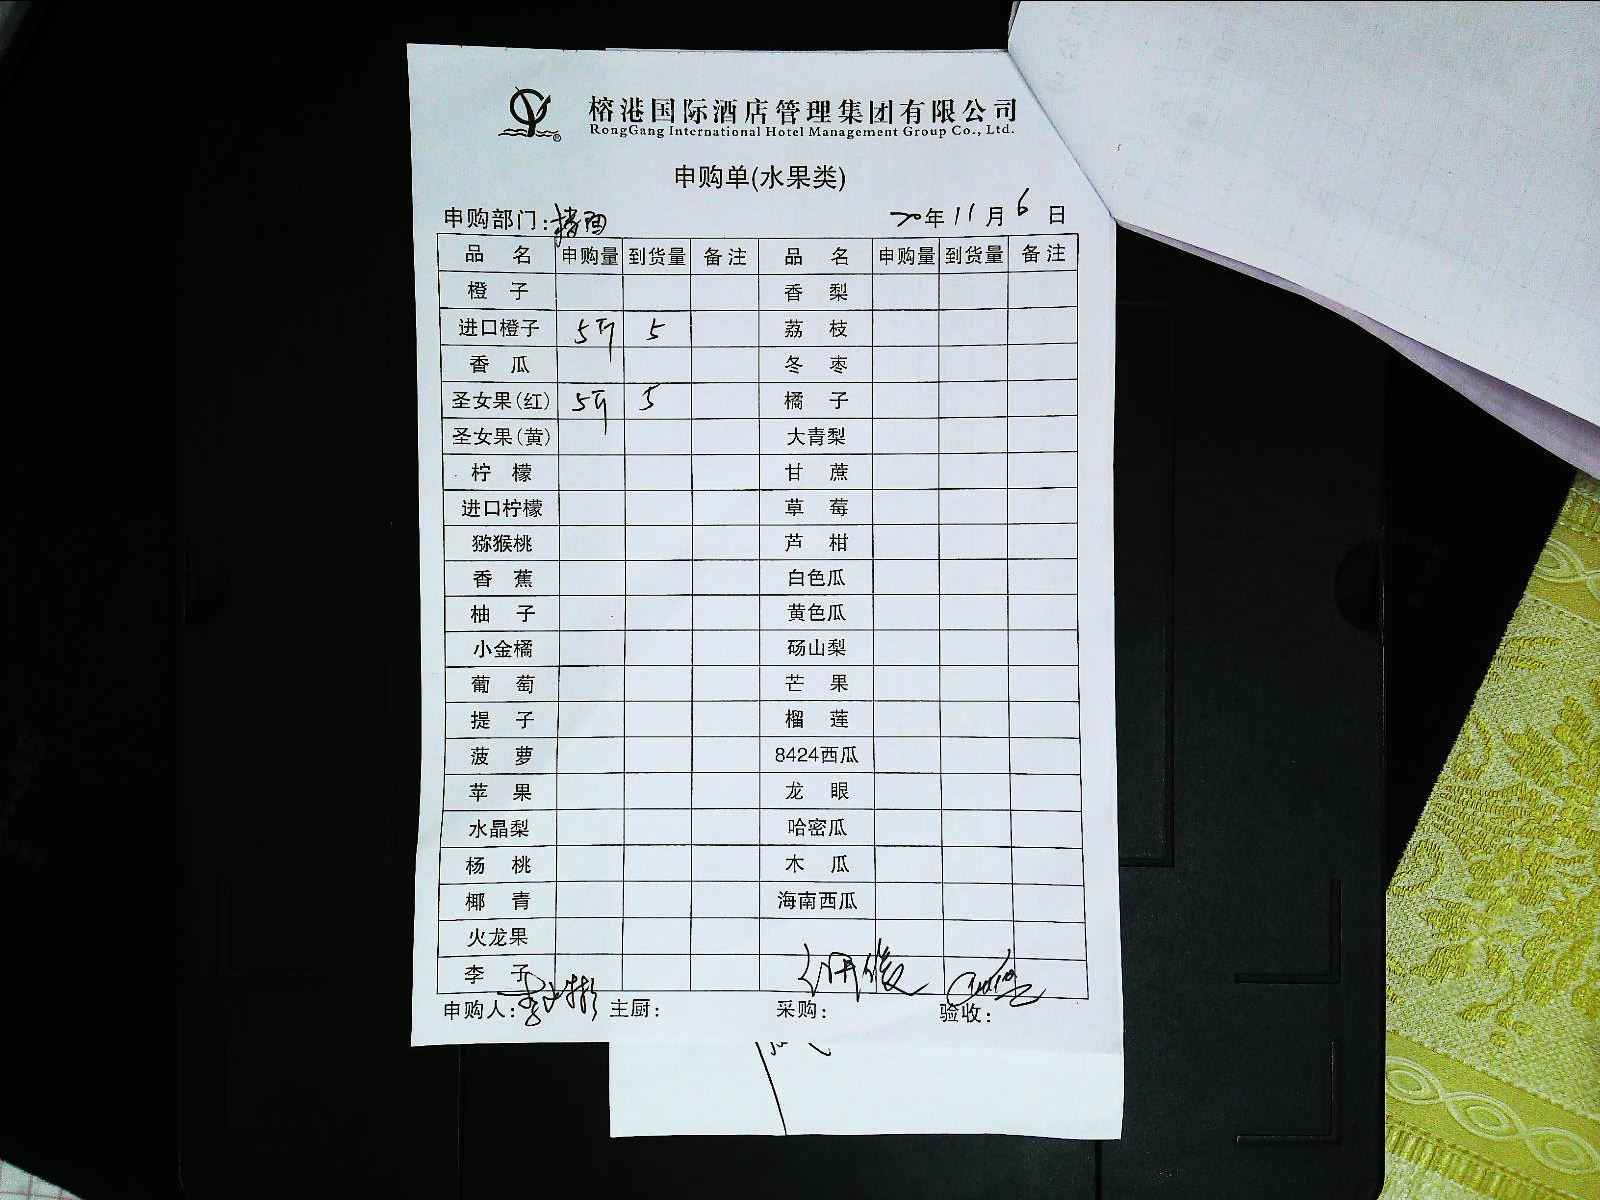 榕港国际酒店管理集团有限公司
RongGang International Hotel Management Group Co., Ltd.
申购单(水果类)
申购部门: 20年11月6日
品名 申购量 到货量 备注 品名 申购量 到货量 备注
橙子 香梨
进口橙子 5斤 5 荔枝
香瓜 冬枣
圣女果(红) 5斤 5 橘子
圣女果(黄) 大青梨
柠檬 甘蔗
进口柠檬 草莓
猕猴桃 芦柑
香蕉 白色瓜
柚子 黄色瓜
小金橘 砀山梨
葡萄 芒果
提子 榴莲
菠萝 8424西瓜
苹果 龙眼
水晶梨 哈密瓜
杨桃 木瓜
椰青 海南西瓜
火龙果
李子
申购人: 主厨: 采购: 验收: